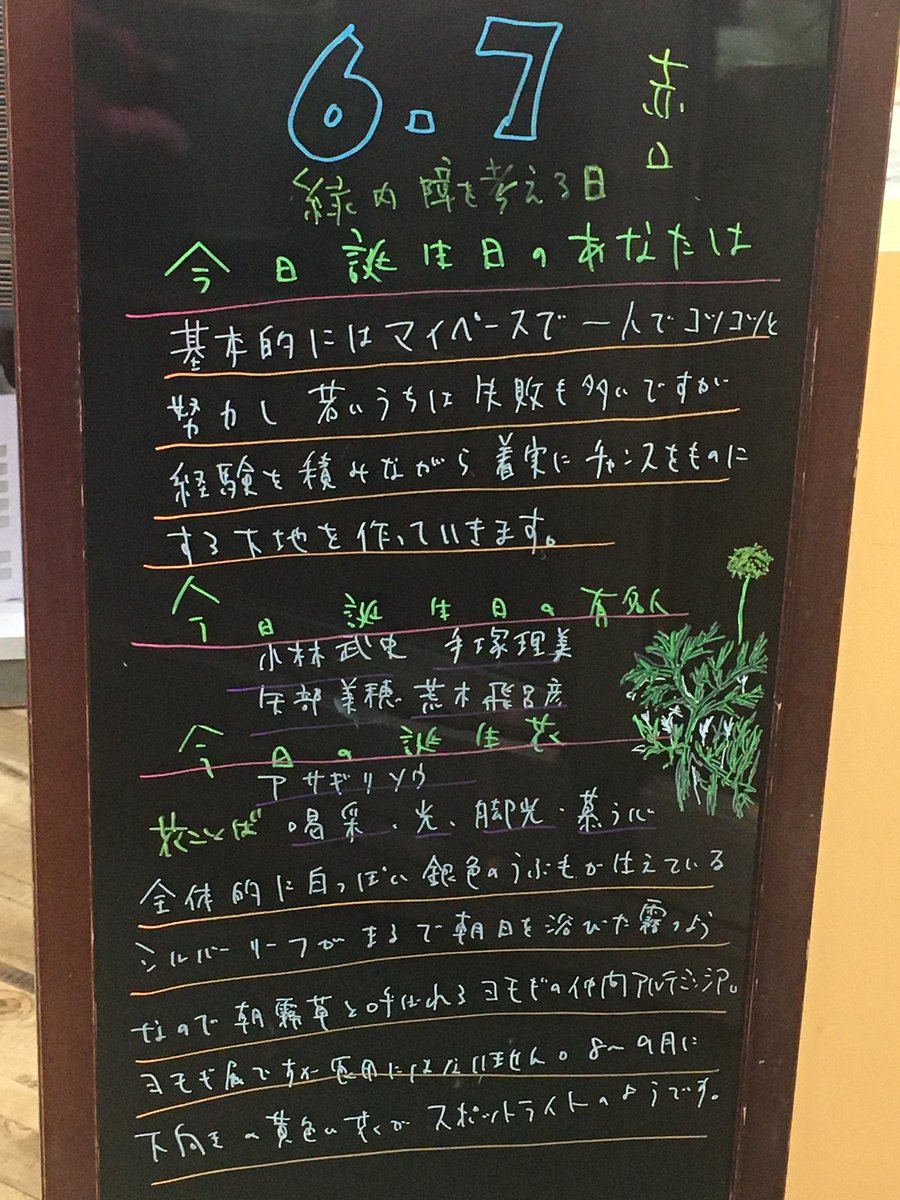 6.7 赤口
緑内障を考える日
今日誕生日のあなたは
基本的にはマイペースで一人でコツコツと
努力し 若いうちは失敗も多いですが
経験を積みながら着実にチャンスをものに
する下地を作っていきます。
今日誕生日の有名人
小林武史 手塚理美
矢部美穂 荒木飛呂彦
今日の誕生花
アサギリソウ
花ことば 喝采、光、脚光・慕う心
全体的に白っぽい銀色のうぶ毛が生えている
シルバーリーフがまるで朝日を浴びた霧のよう
なので朝霧草と呼ばれるヨモギの仲間アルテミシア。
ヨモギ属ですが食用にはなりません。8〜9月に
下向きの黄色い花がスポットライトのようです。